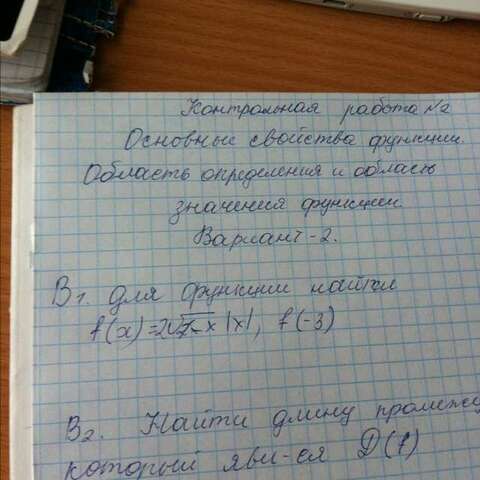 Контрольная работа №2
Основные свойства функции.
Область определения и область
значения функции
Вариант-2.
В1. Для функции найти
f(x)=2√ -x |x|, f(-3)
В2. Найти длину промежу
который явл-ся D(f)